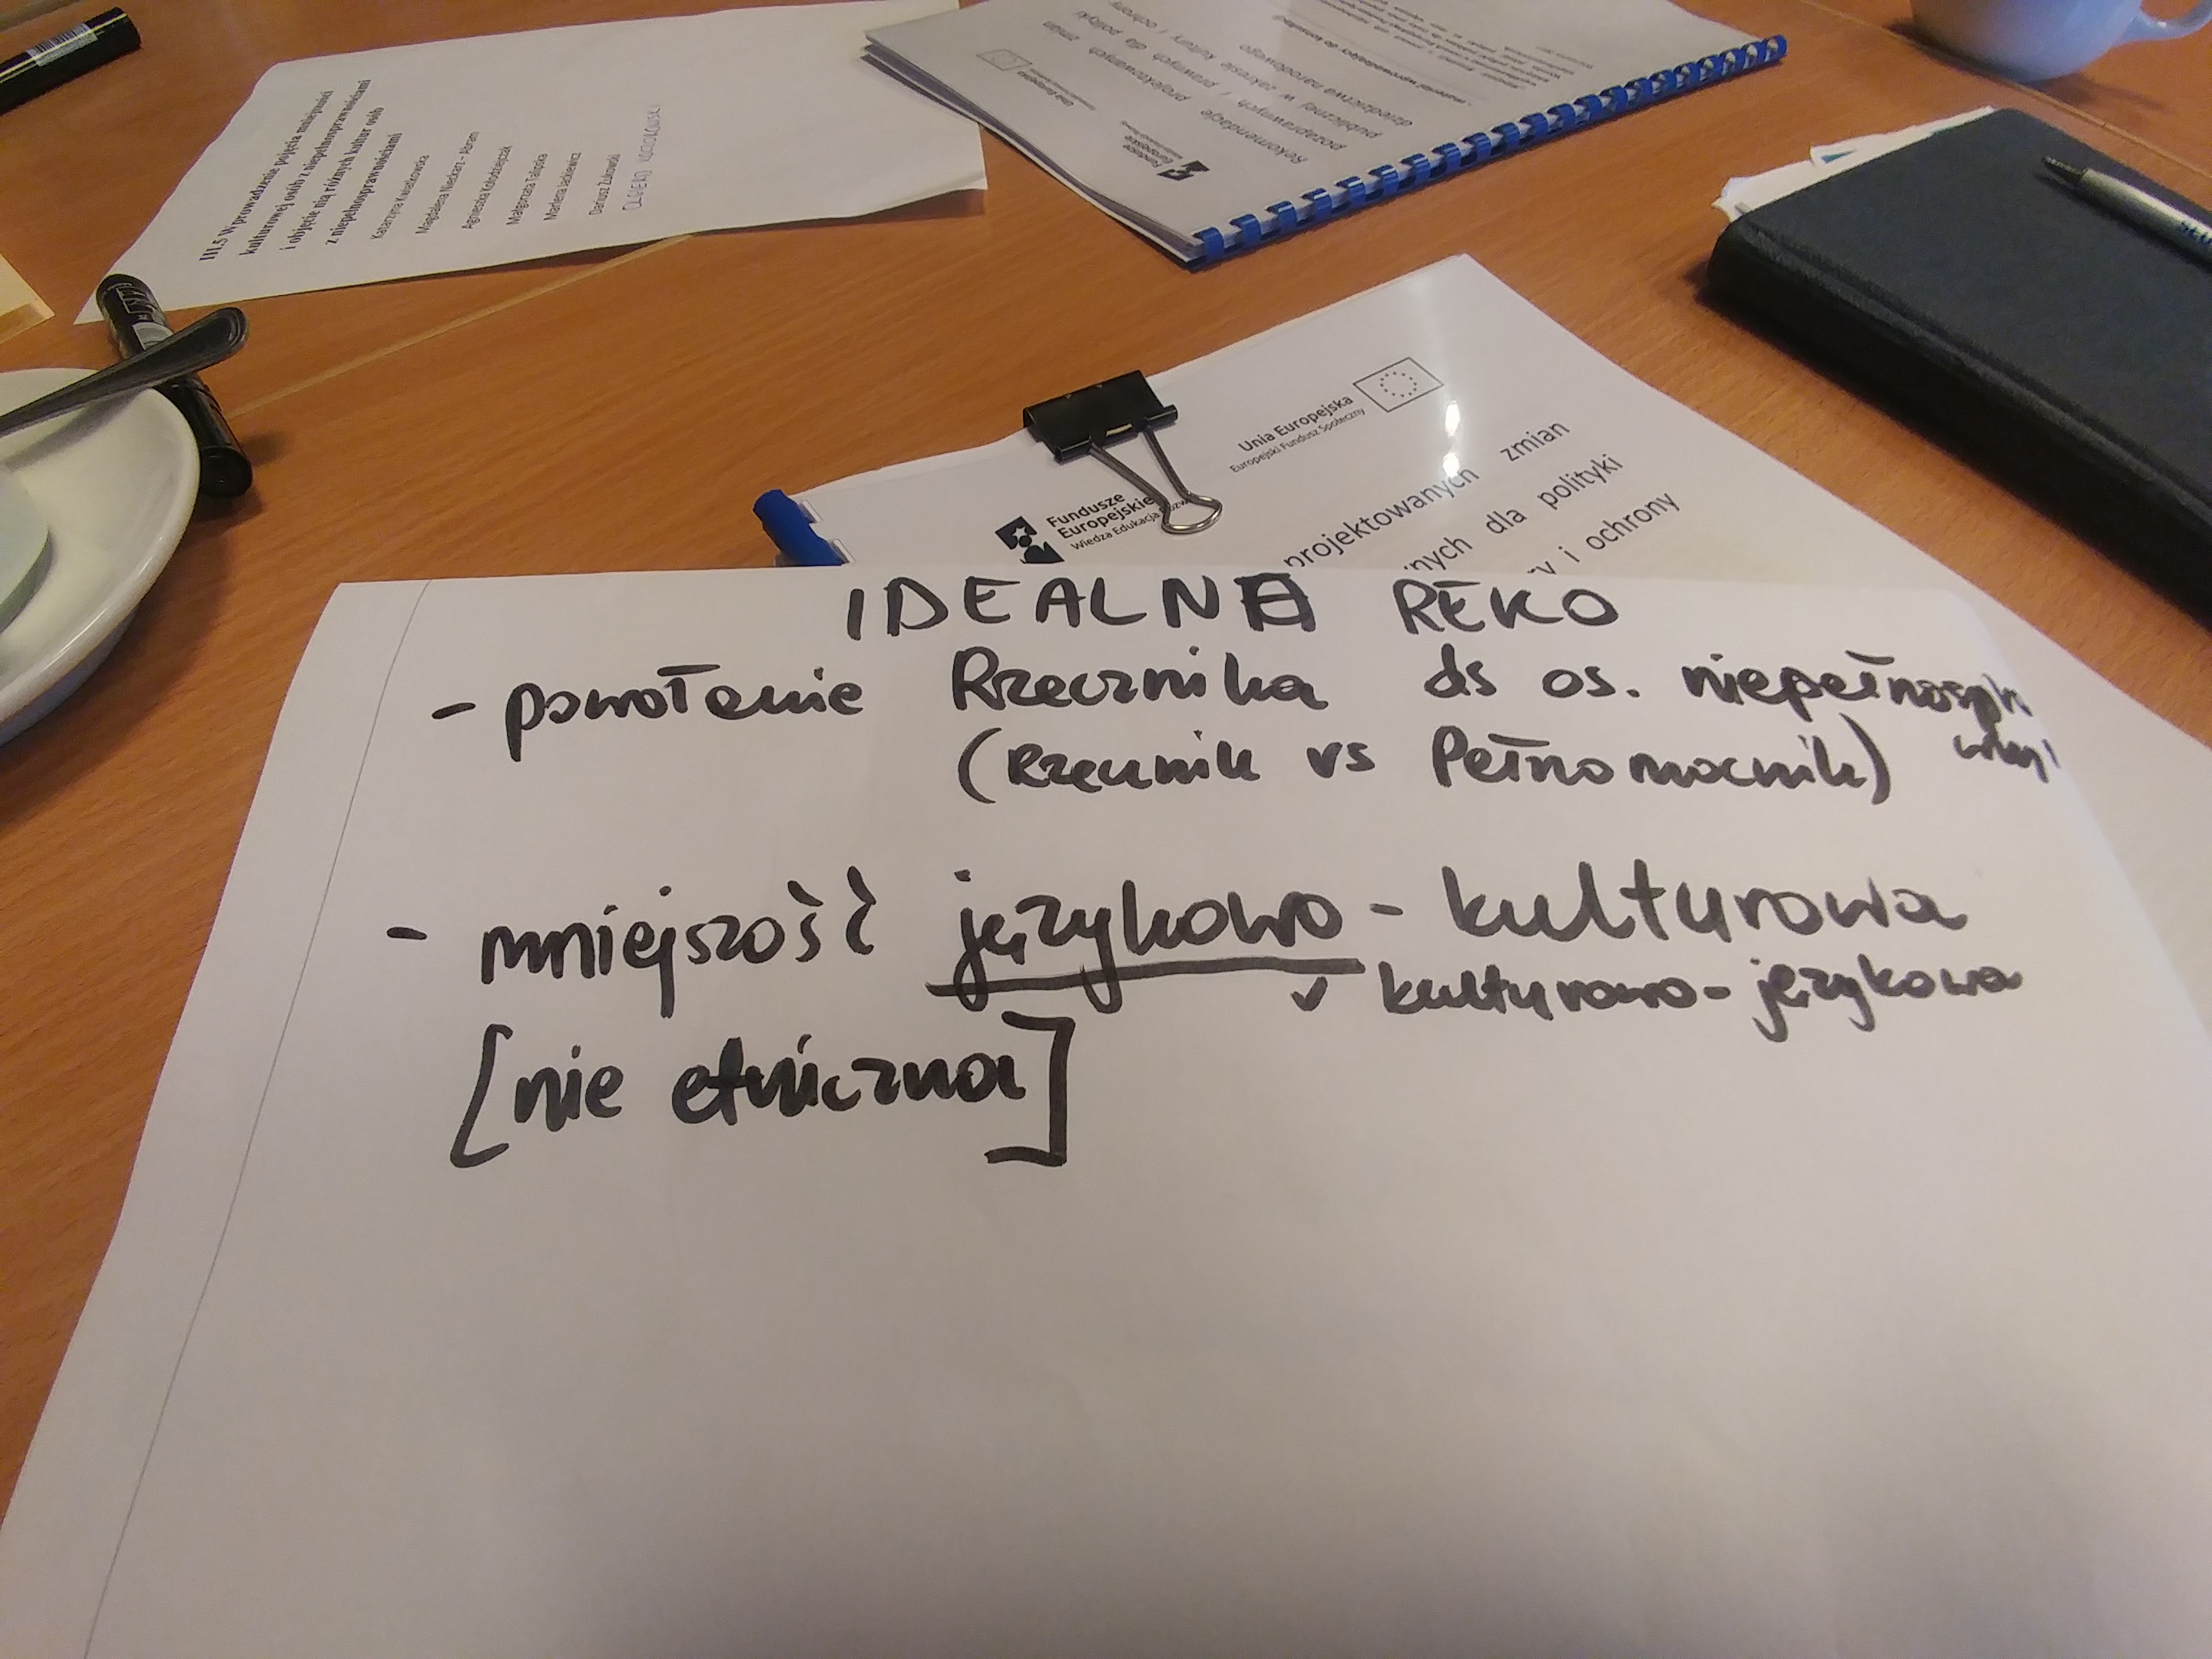 III.5 Wprowadzenie pojęcia mniejszości
kulturowej osób z niepełnosprawnościami
i objęcie nią różnych kultur osób
z niepełnosprawnościami
Katarzyna Kwiatkowska
Magdalena Nieckarz - Abram
Agnieszka Kołodziejczak
Małgorzata Talipska
Marlena Jackiewicz
Dariusz Żukowski
Fundusze
Europejskie
Unia Europejska
Rekomendacje projektowanych zmian
pozaprawnych i prawnych dla polityki
publicznej w zakresie kultury i ochrony
dziedzictwa narodowego
Fundusze
Europejskie
Wiedza Edukacja
Unia Europejska
Europejski Fundusz Społeczny
projektowanych zmian
dla polityki
i ochrony
IDEALNA REKO
- powołanie Rzecznika ds os. niepełnospr
(Rzecznik vs Pełnomocnik)
- mniejszość językowo - kulturowa
v kulturowo - językowa
[nie etniczna]